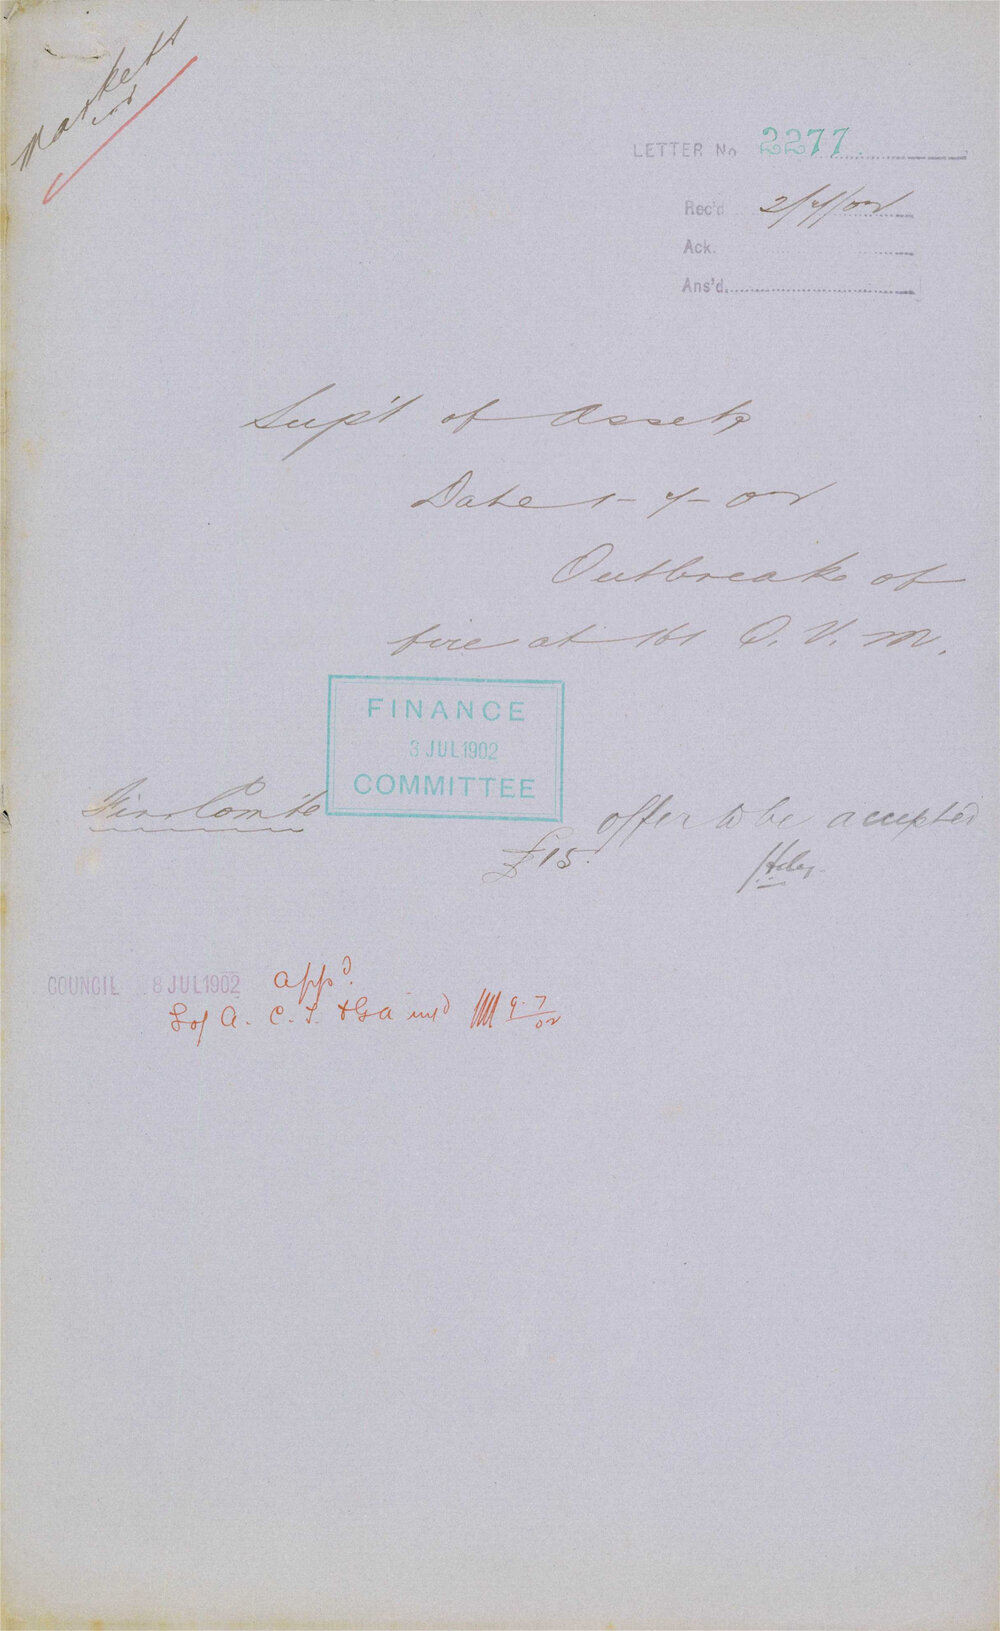 Markets
LETTER No 2277
Rec'd 2/7/02
Ack.
Ans'd.
Sup't of Assets
Date 1-7-02
Outbreak of
fire at 161 Q. V. M.
FINANCE
3 JUL 1902
COMMITTEE
Fin Com'te
offer to be accepted
£15.
COUNCIL 8 JUL 1902 appd.
A. C. S. 9.7/02